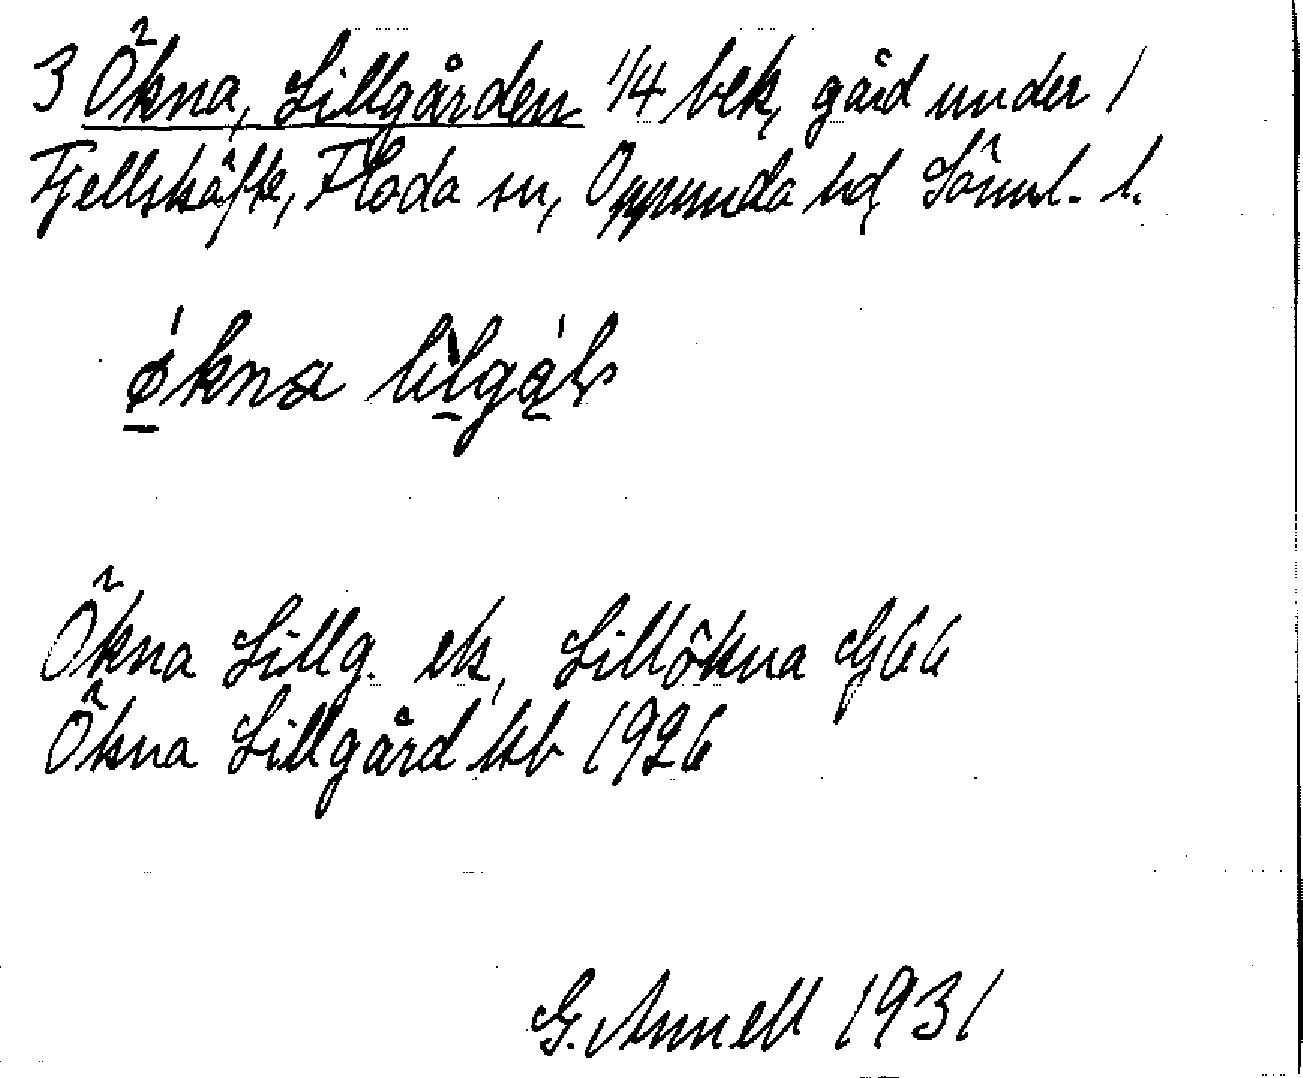 3 Ökna, Lillgården 1/4 bek, gård under 1
Fjellskäfte, Floda sn, Oppunda hd Söml. l.
ókna lìlgál
Ökna Lillg. ek, Lillökna G66
Ökna Lillgård kb 1926
G. Annell 1931